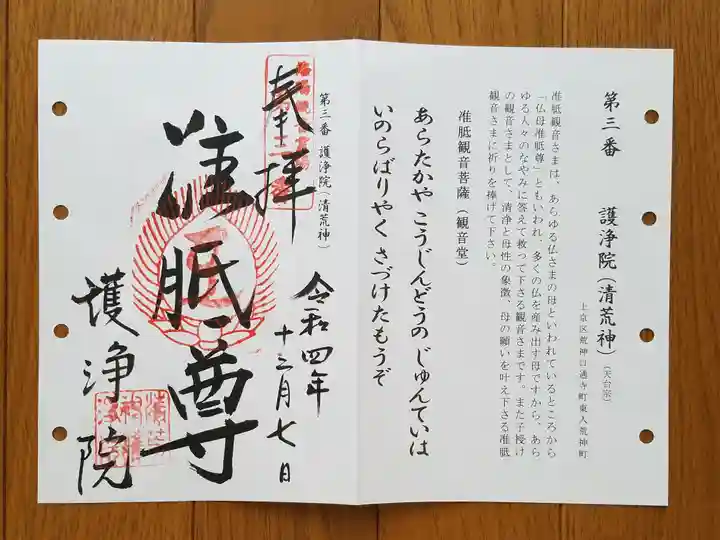 第三番　護浄院（清荒神）（天台宗）
上京区荒神口通寺町東入荒神町
准胝観音さまは、あらゆる仏さまの母といわれているところから
「仏母准胝尊」ともいわれ、多くの仏を産み出す母ですから、あら
ゆる人々のなやみに答えて救って下さる観音さまです。また子授け
の観音さまとして、清浄と母性の象徴、母の願いを叶え下さる准胝
観音さまに祈りを捧げて下さい。
准胝観音菩薩（観音堂）
あらたかや こうじんどうの じゅんていは
いのらばりやく さづけたもうぞ
第三番 護浄院（清荒神）
奉拝
令和四年
十二月七日
准胝尊
護浄院